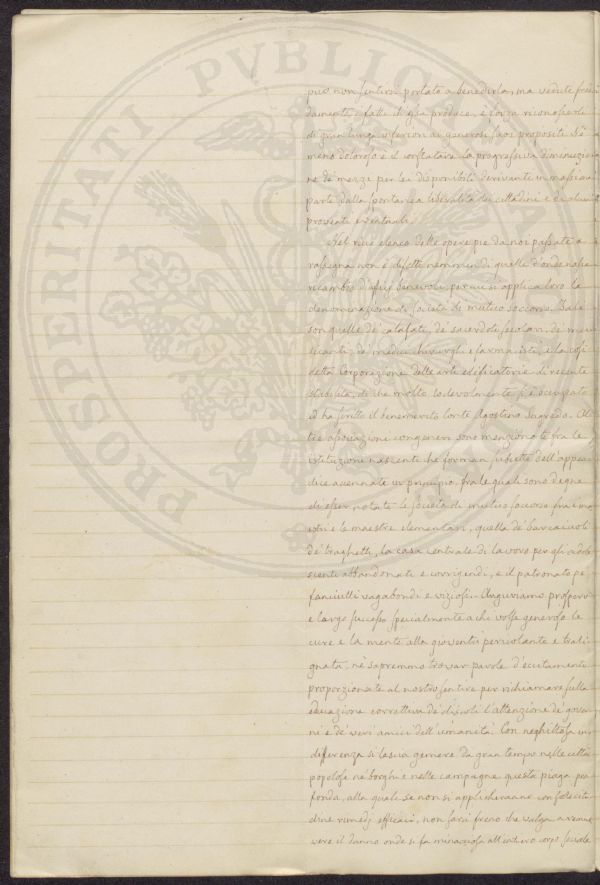 PROSPERITATI PVBLICAE
può non sentirsi portato a benedirla, ma vedute fred
damente i fatti ch'essa produce, è forza riconoscerli
di gran lunga inferiori ai generosi suoi propositi. Nè
meno doloroso è il constatare la progressiva diminuzio
ne de' mezzi per lei disponibili derivante in massima
parte dalla spontanea liberalità dei cittadini e da alcuni
proventi eventuali.
Nel ricco elenco delle opere pie da noi passate a
rassegna non è difetto nemmen di quelle d'onde nasce
ricambio d'uffizj benevoli, per cui si applica loro la
denominazione di società di mutuo soccorso. Tali
son quelle de' calafati, de' sacerdoti secolari, de' me
dicanti, de' medici chirurghi e farmacisti, e la così
detta Corporazione delle arti edificatorie di recente
stabilita, di che molto lodevolmente si è occupato
ed ha scritto il benemerito Conte Agostino Sagredo. Al
tre associazioni congeneri sono menzionate fra le
istituzioni nascenti che forman subietto dell'appen
dice accennata in principio, fra le quali sono degne
di esser notate le società di mutuo soccorso fra i ma
estri e le maestre elementari, quella de' barcaiuoli
de' traghetti, la casa centrale di lavoro per gli adole
scenti abbandonati e corrigendi, e il patronato pe'
fanciulli vagabondi e viziosi. Auguriamo prospero
e largo successo specialmente a chi volse generoso le
cure e la mente alla gioventù pericolante e trali
gnata, nè sapremmo trovar parole d'eccitamento
proporzionate al nostro sentire per richiamare sulla
educazione correttiva de' discoli l'attenzione de' gover
ni e de' veri amici dell'umanità. Con neghittosa in
differenza si lascia gemere da gran tempo nelle città
popolose ne' borghi e nelle campagne questa piaga pro
fonda, alla quale se non si applicheranno con solleciti
dine rimedj efficaci, non sarà freno che valga a rattene
vere il danno onde si fa minacciosa all'intiero corpo sociale